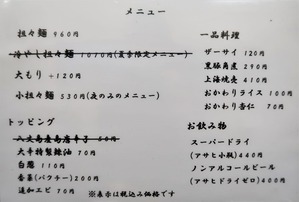 メニュー
担々麺 960円
冷やし担々麺 1010円(夏季限定メニュー)
大もり +120円
小担々麺 530円(夜のみのメニュー)
トッピング
八丈島産島唐辛子 50円
大辛特製辣油 70円
白葱 110円
香菜(パクチー) 200円
追加エビ 70円
一品料理
ザーサイ 120円
黒豚角煮 290円
上海焼売 410円
おかわりライス 100円
おかわり杏仁 70円
お飲み物
スーパードライ
(アサヒ小瓶) 440円
ノンアルコールビール
(アサヒドライゼロ) 400円
※表示は税込み価格です